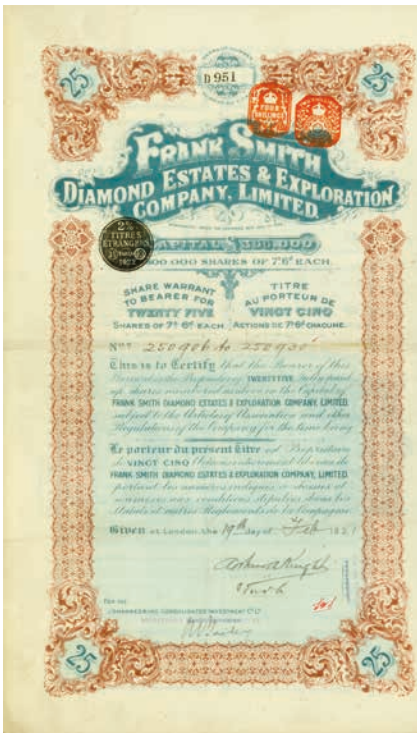 25
D 951
25
FOUR
SHILLINGS
FRANK SMITH
DIAMOND ESTATES & EXPLORATION
COMPANY, LIMITED.
2%
TITRES
ETRANGERS
CAPITAL
SHARES OF 7/6 EACH
SHARE WARRANT
TO BEARER FOR
TWENTY FIVE
SHARES OF 7/6 EACH
TITRE
AU PORTEUR DE
VINGT CINQ
ACTIONS DE 7/6 CHACUNE.
Nos 250906 to 250930
This is to Certify that the Bearer of this
Warrant is the Proprietor of TWENTY FIVE fully paid
up shares numbered as above in the Capital of
FRANK SMITH DIAMOND ESTATES & EXPLORATION COMPANY, LIMITED,
subject to the Articles of Association and other
Regulations of the Company for the time being
Le porteur du présent Titre est Propriétaire
de VINGT CINQ Actions
FRANK SMITH DIAMOND ESTATES & EXPLORATION COMPANY, LIMITED,
portant les numéros indiqués ci-dessus et
soumises aux conditions stipulées dans les
Statuts et autres Règlements de la Compagnie
Given at London, the 19th day of Feb 192
FOR THE
JOHANNESBURG CONSOLIDATED INVESTMENT Co Ld
25
25